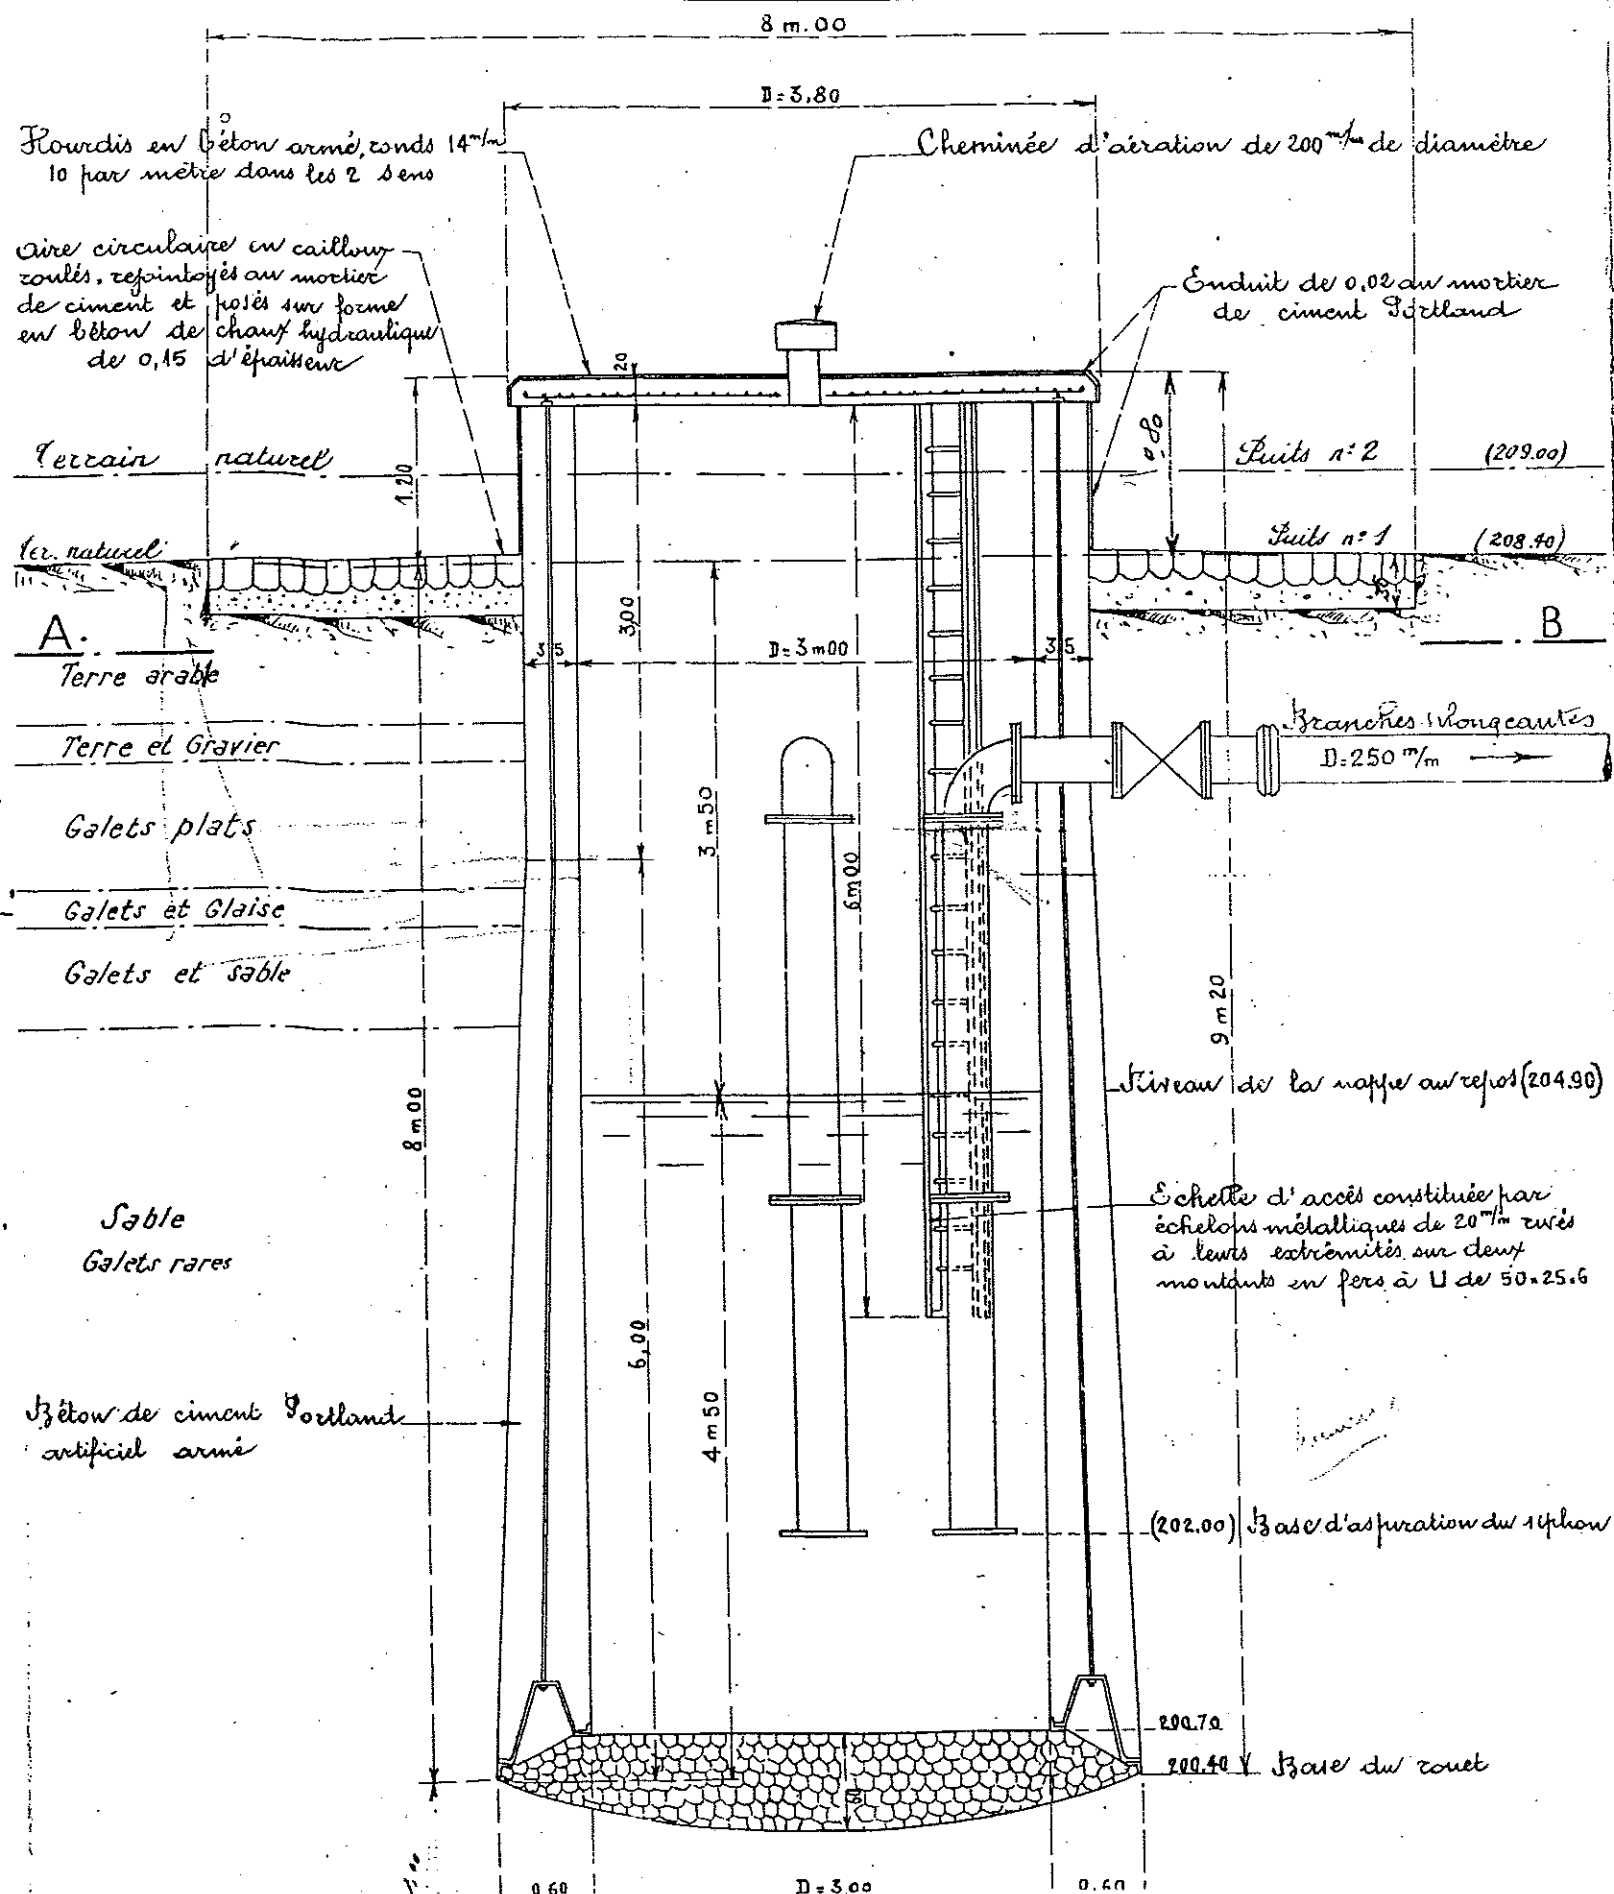 8 m.00
D=3,80
Hourdis en béton armé, ronds 14 m/m
10 par mètre dans les 2 sens
Cheminée d'aération de 200 m/m de diamètre
aire circulaire en cailloux
roulés, rejointoyés au mortier
de ciment et posés sur forme
en béton de chaux hydraulique
de 0,15 d'épaisseur
Enduit de 0,02 au mortier
de ciment Portland
20
1.20
0,80
Terrain naturel
Puits n° 2 (209.00)
Ter. naturel
Puits n° 1 (208.40)
30
A.
B
3,00
35
D=3m00
35
Terre arable
Terre et Gravier
Branches plongeantes
D=250 m/m
Galets plats
3m50
6m00
Galets et Glaise
Galets et sable
9m20
8m00
Niveau de la nappe au repos (204.90)
Sable
Galets rares
Echelle d'accès constituée par
échelons métalliques de 20 m/m rivés
à leurs extrémités sur deux
montants en fers à U de 50.25.6
6,00
4m50
Béton de ciment Portland
artificiel armé
(202.00) Base d'aspiration du siphon
200.70
200.40 Base du rouet
50
0.60
D=3.00
0.60